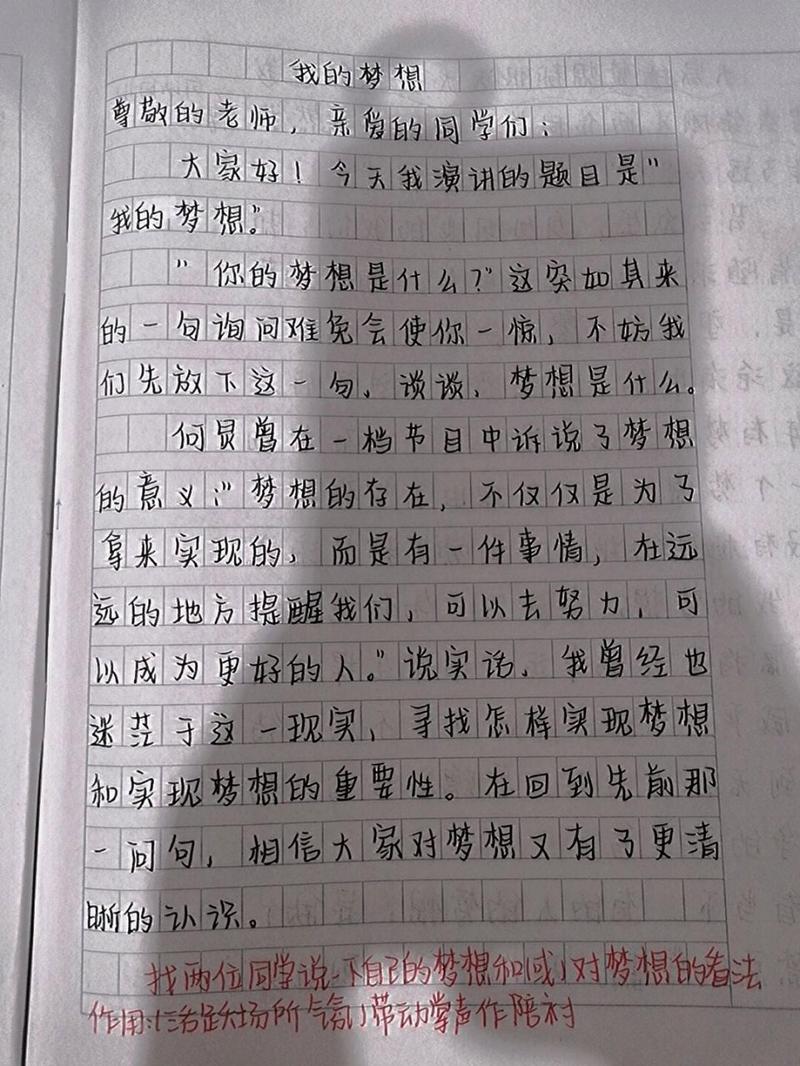 我的梦想
尊敬的老师，亲爱的同学们：
大家好！今天我演讲的题目是"
我的梦想"。
"你的梦想是什么？"这突如其来
的一句询问难免会使你一惊，不妨我
们先放下这一句，谈谈，梦想是什么。
何炅曾在一档节目中诉说了梦想
的意义："梦想的存在，不仅仅是为了
拿来实现的，而是有一件事情，在远
远的地方提醒我们，可以去努力，可
以成为更好的人。"说实话，我曾经也
迷茫于这一现实，寻找怎样实现梦想
和实现梦想的重要性。在回到先前那
一问句，相信大家对梦想又有了更清
晰的认识。
找两位同学说一下自己的梦想和(或)对梦想的看法
作用：(活跃场所气氛)带动掌声作陪衬